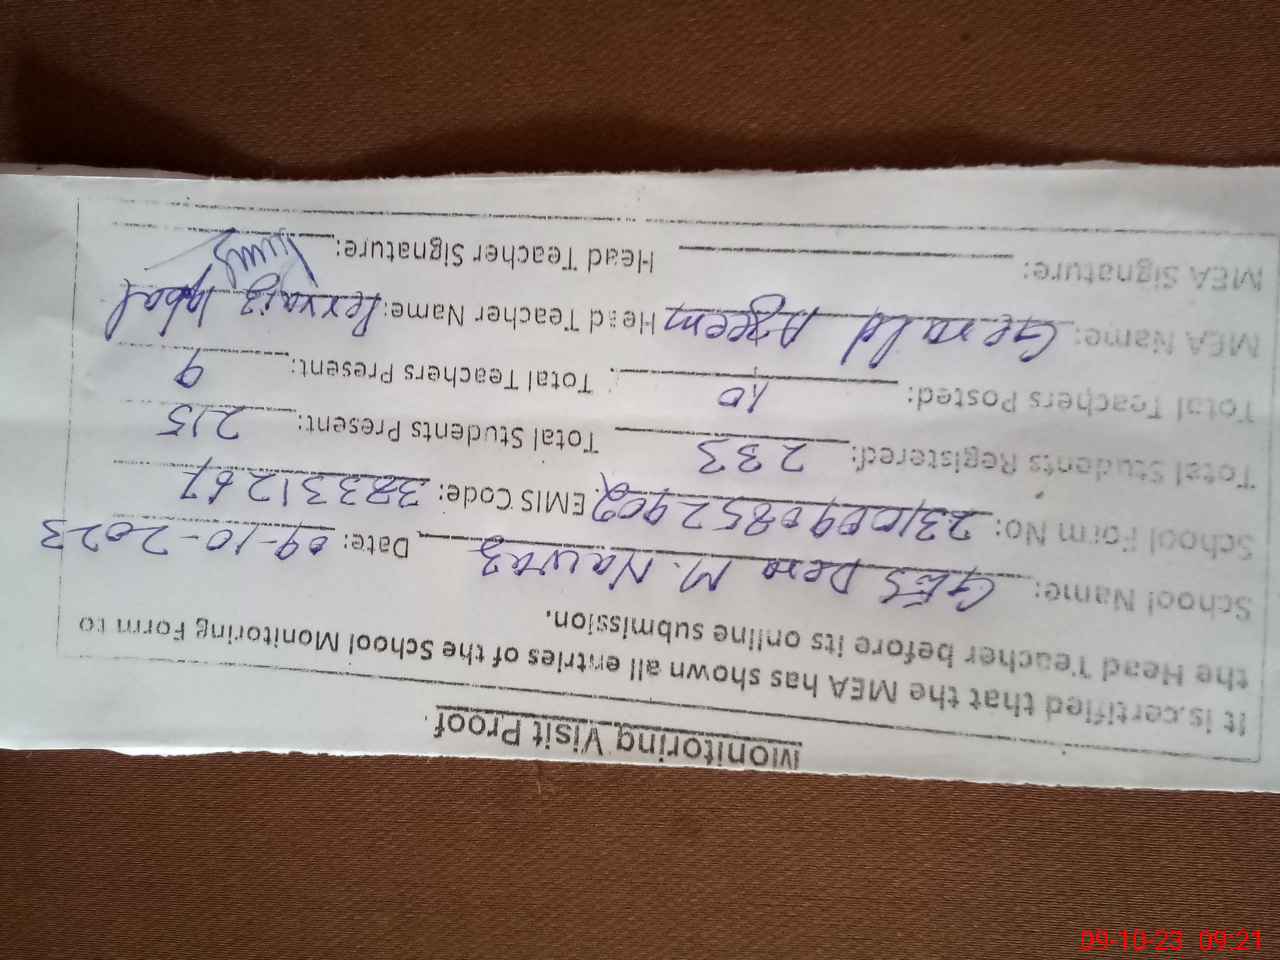 Monitoring Visit Proof
It is certified that the MEA has shown all entries of the School Monitoring Form to
the Head Teacher before its online submission.
School Name: GES Dera M. Nawaz Date: 09-10-2023
School Form No: EMIS Code: 38331267
Total Students Registered: 233 Total Students Present: 215
Total Teachers Posted: 10 Total Teachers Present: 9
MEA Name: Gerald Azeem Head Teacher Name: Pervaiz Iqbal
MEA Signature: Head Teacher Signature:
09-10-23 09:21